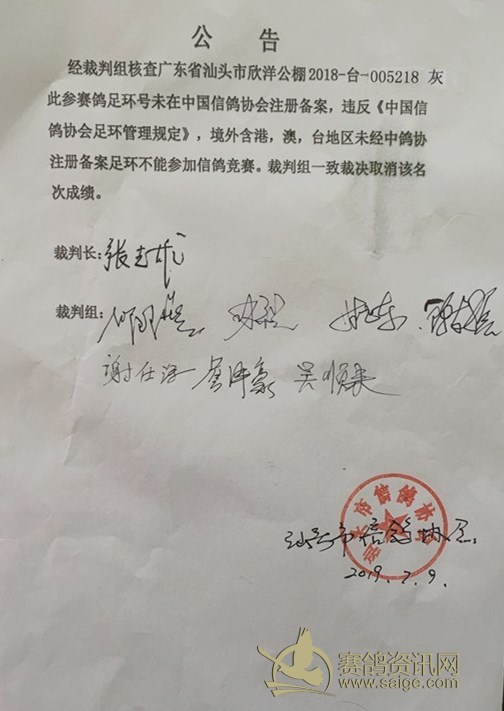 公 告
经裁判组核查广东省汕头市欣洋公棚2018-台-005218 灰
此参赛鸽足环号未在中国信鸽协会注册备案，违反《中国信
鸽协会足环管理规定》，境外含港，澳，台地区未经中鸽协
注册备案足环不能参加信鸽竞赛。裁判组一致裁决取消该名
次成绩。
裁判长：张
裁判组：
谢任 吴顺
汕头市信鸽协会
2019.7.9.
赛鸽资讯网
www.saige.com